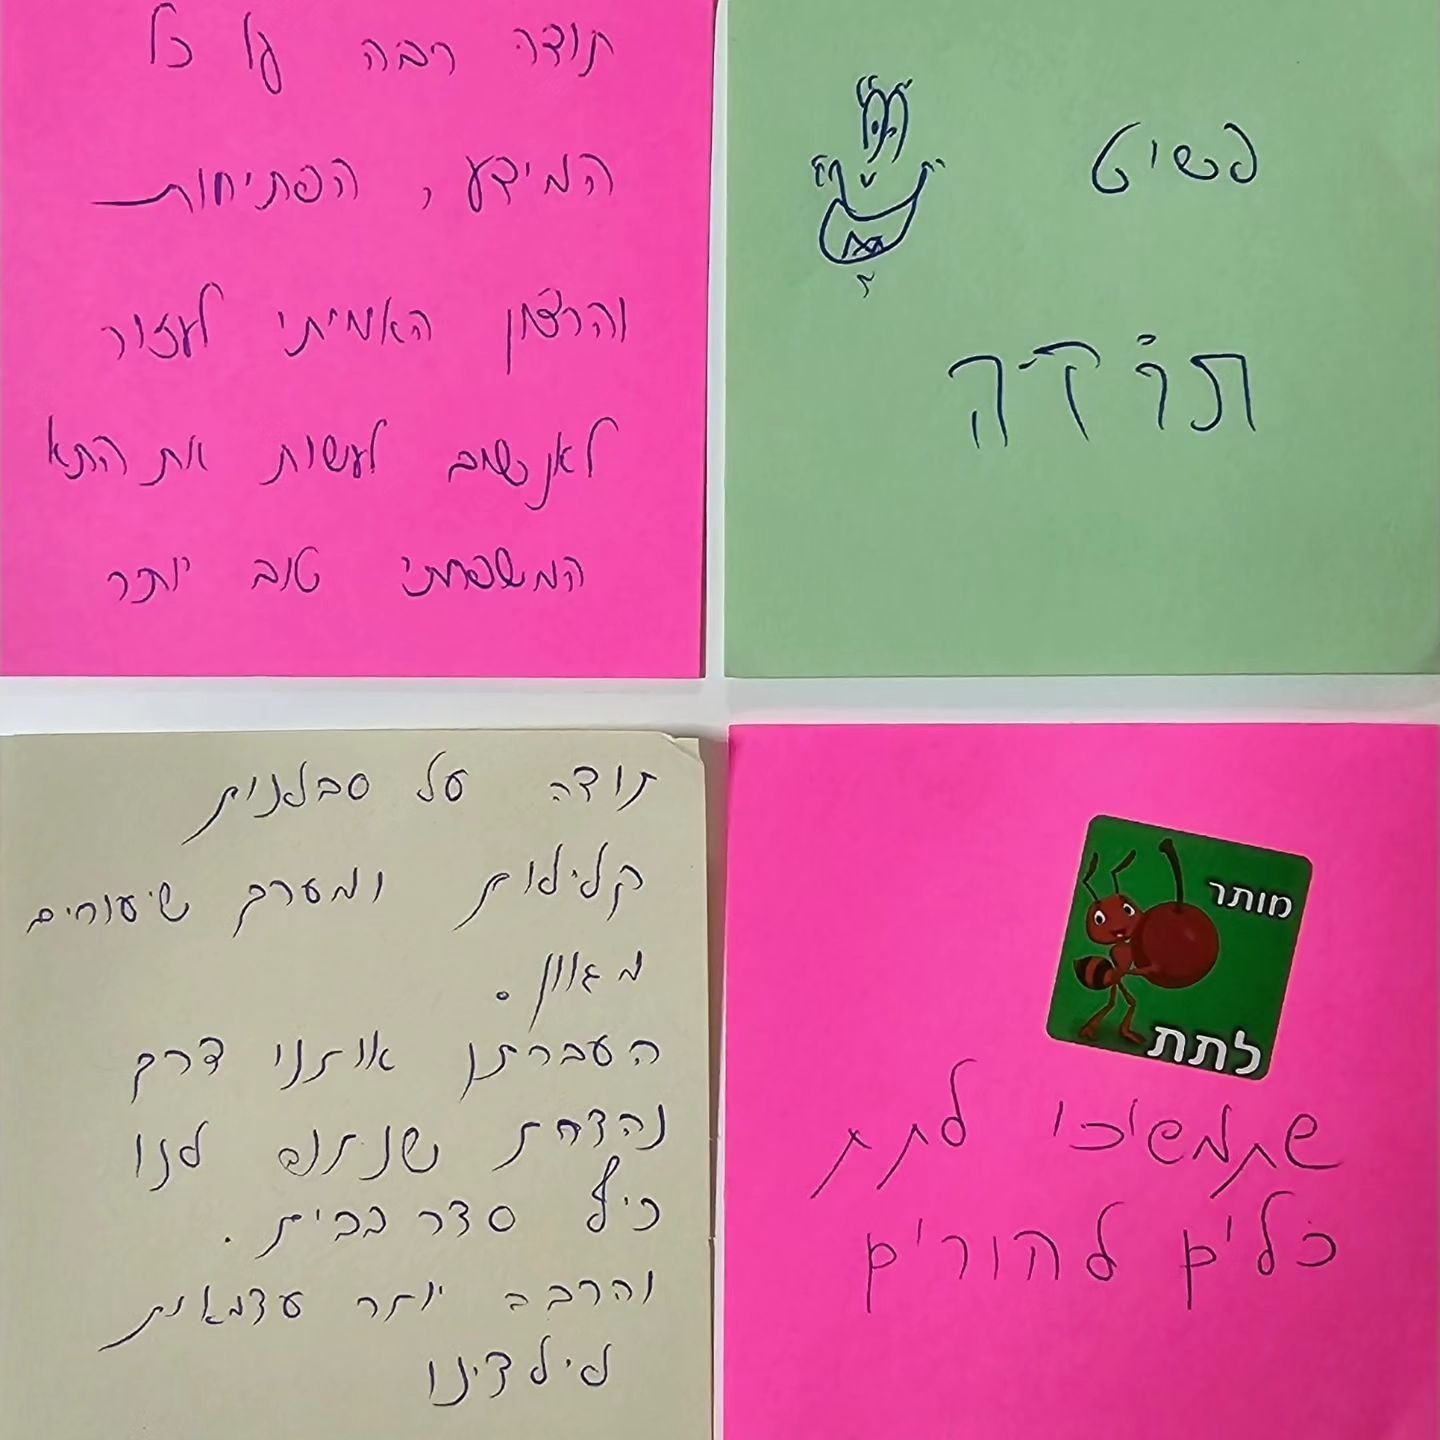 תודה רבה על כל
המידע, הפתיחות
והרצון האמיתי לעזור
לאנשים לעשות את התא
המשפחתי טוב יותר
פשוט
תודה
תודה על סבלנות
קלילות ומערך שיעורים
מגוון.
העברתן אותנו דרך
נהדרת שנתנה לנו
כיף סדר בבית.
והרבה יותר עצמאות
לילדינו
מותר
לתת
שתמשיכו לתת
כלים להורים